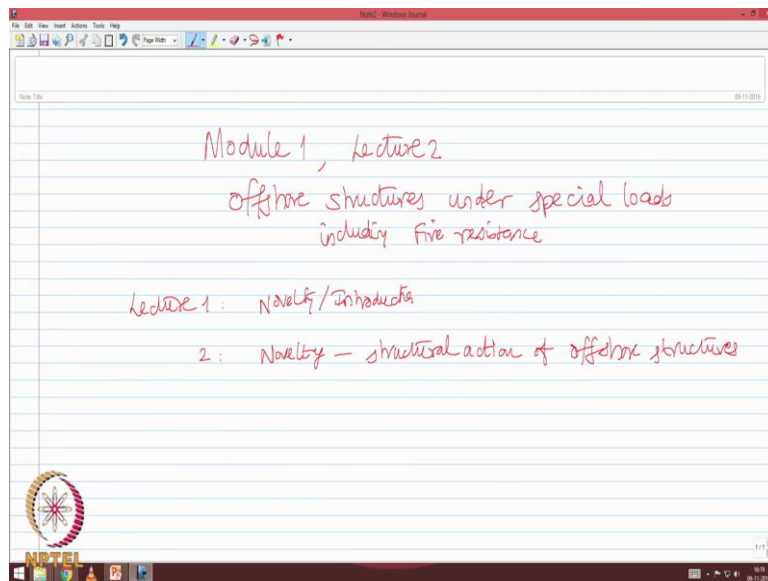 Note2 - Windows Journal
File Edit View Insert Actions Tools Help
Page Width
Note Title
09-11-2016
Module 1, Lecture 2
offshore structures under special loads
including Fire resistance
Lecture 1: Novelty/Introduction
2: Novelty - structural action of offshore structures
1/1
NPTEL
16:19